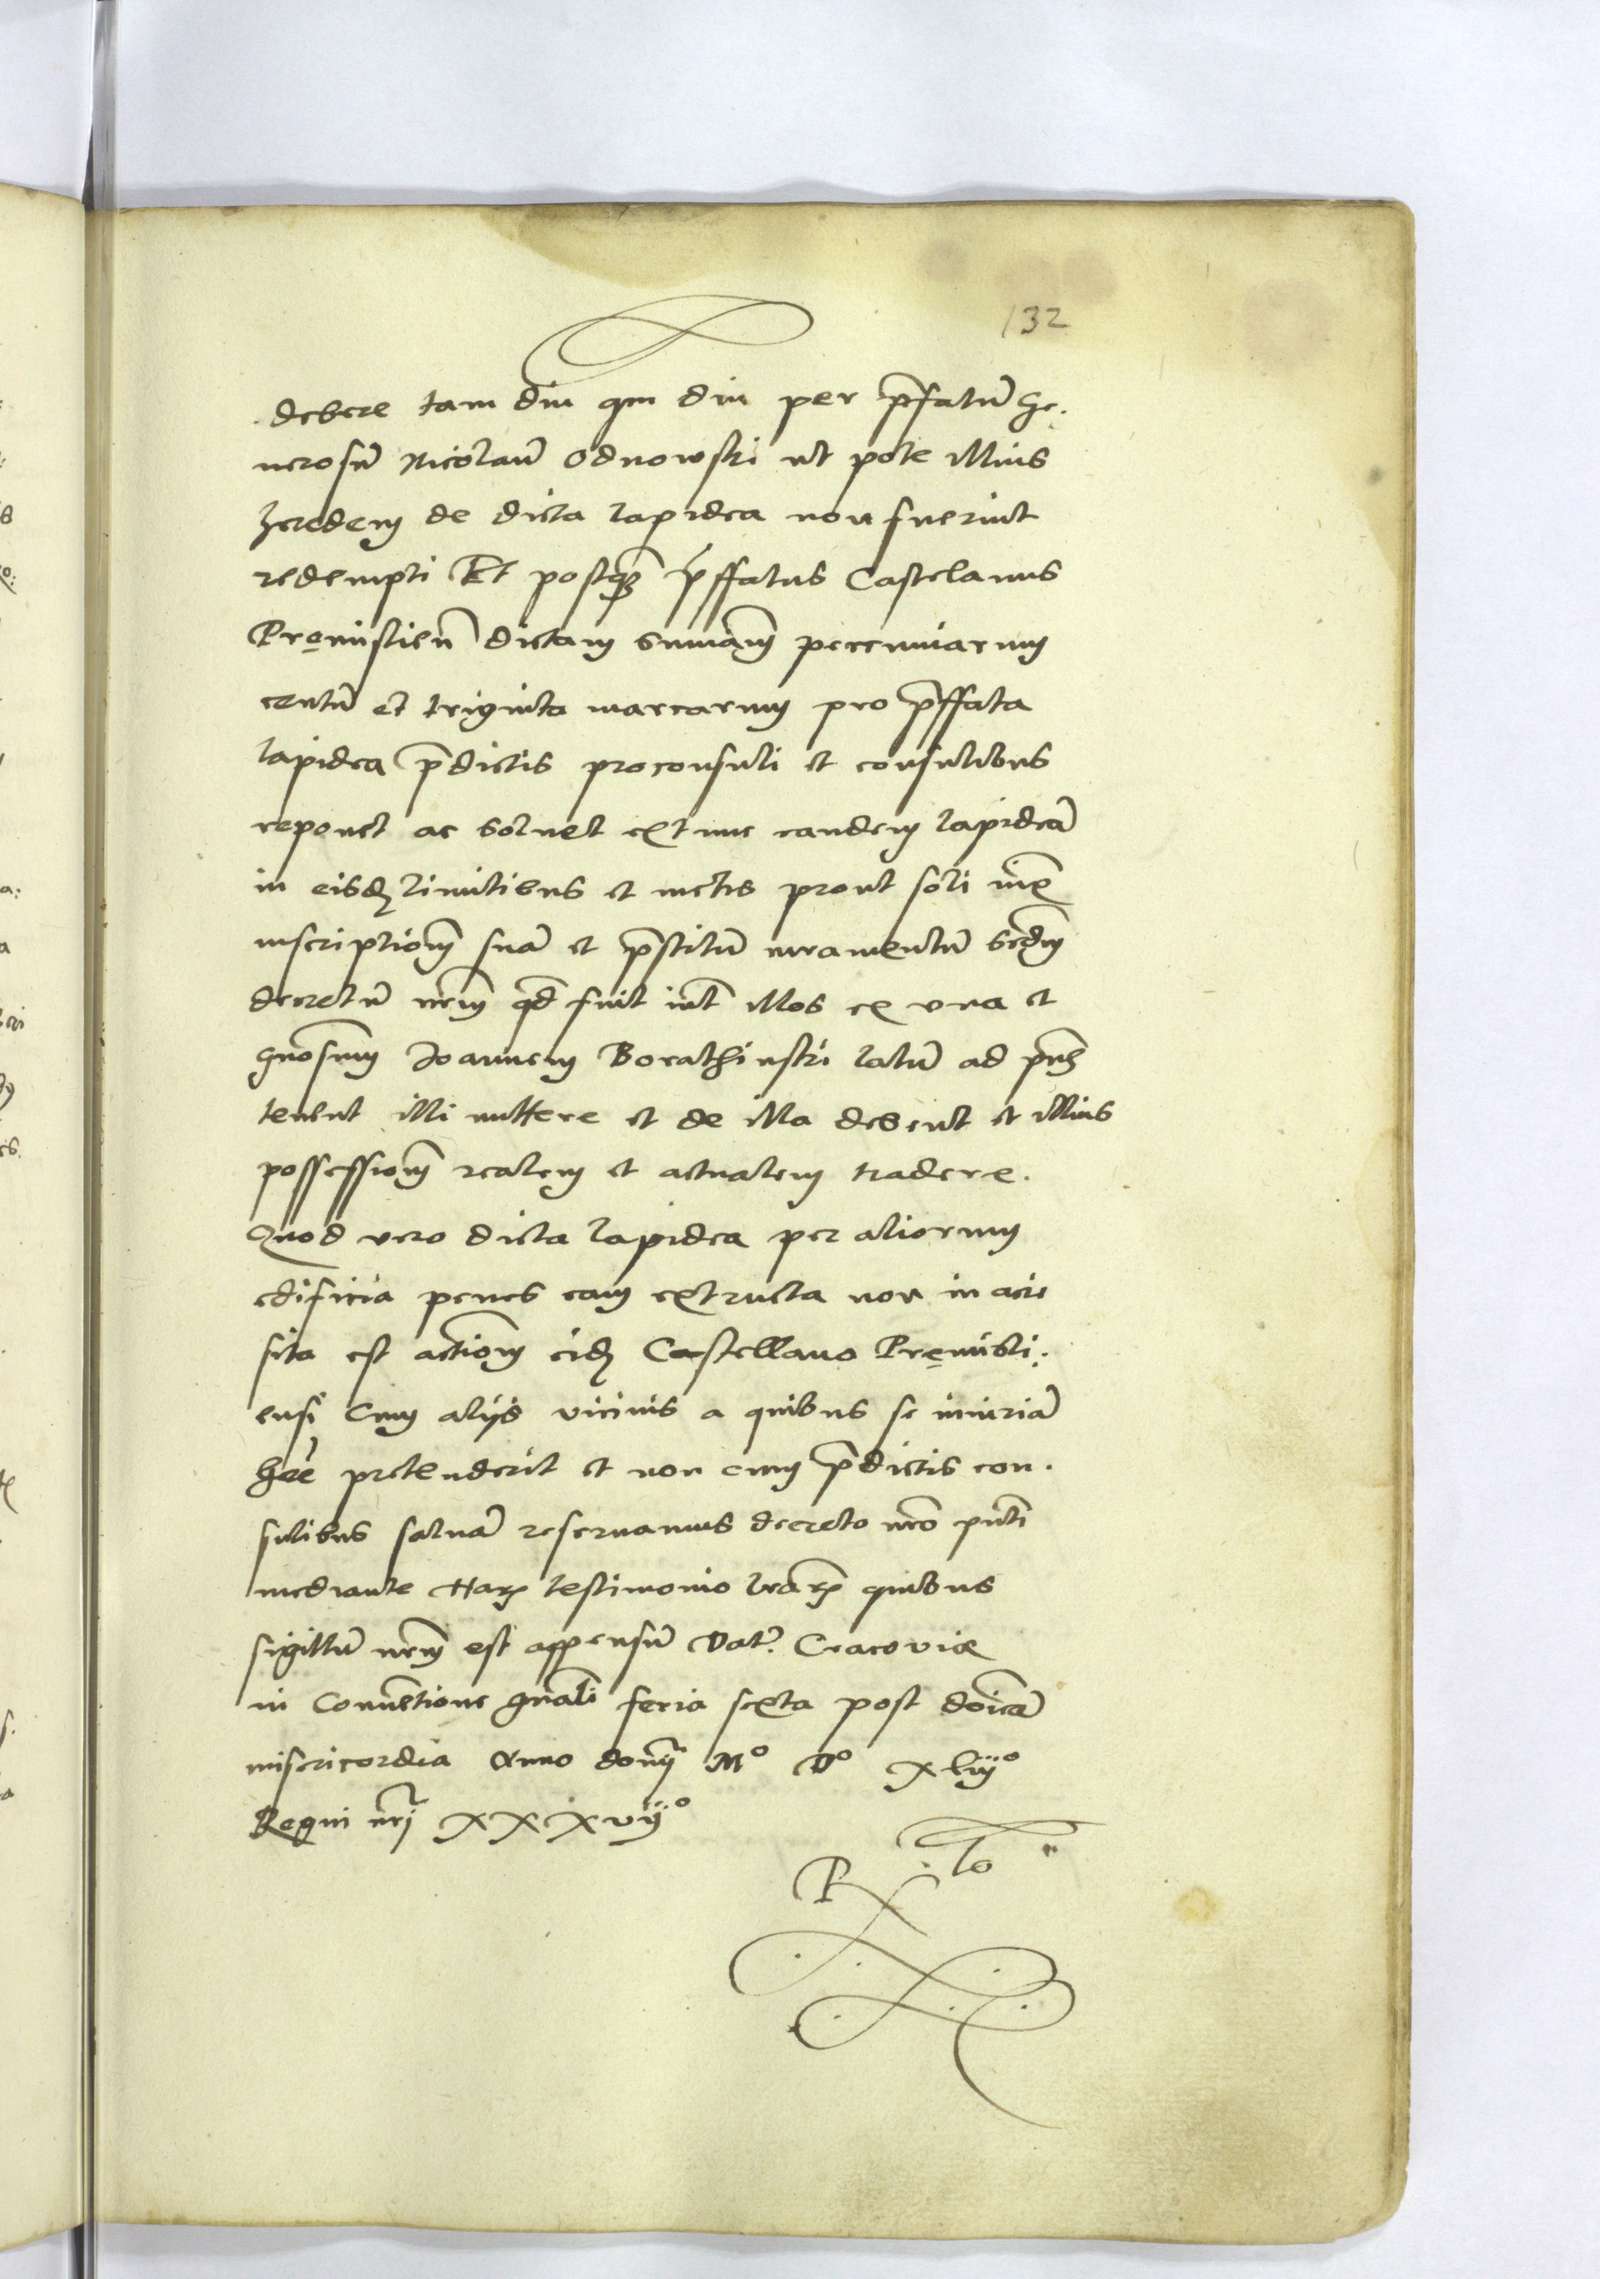 132
debere tam diu qm diu per p̄fatū Ge.
nerosū Nicolaū Odnowski ut pote illius
heredem de dicta lapidea non fuerint
redempti Et postq̄ p̄ffatus Castelanus
Premislieñ dictam summam pecuniarum
centū et triginta marcarum pro p̄ffata
lapidea p̄dictis proconsuli et consulibus
reponet ac solvet extunc eandem lapideā
in eisdē limitibus et metis prout soli
inscriptionē suā et p̄stitū iuramentū scdm
decretū nrm qd fuit int illos ex una et
gnosum Joannem Borathinski latū ad
tenent illi mittere et de illa debent et illius
possessionē realem et actualem tradere.
Quod vero dicta lapidea per aliorum
edificia penes eam extructa non in acie
sita est actionē eidē Castellano Premisli.
ensi cum alijs vicinis a quibus se iniuriā
hrē pretenderit et non cum p̄dictis con.
sulibus salvā reservamus decreto nrō pñti
mediante Harȝ testimonio lrarȝ quibus
sigillū nrm est appensū Datֿ. Cracoviæ
in Conuētione gnāli feria sexta post dōicā
misericordia Anno domī Mº Dº xliijº
Regni nrj xxxvijº